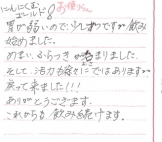 にんにく玉
ゴールド
お便りさん
胃が弱いので、いしずつですが飲み
始めました。
めまい、ふらつきが治まりました。
そして、活力も徐々にではありますが
戻って来ました!!!
ありがとうございます。
これからも飲み続けます。